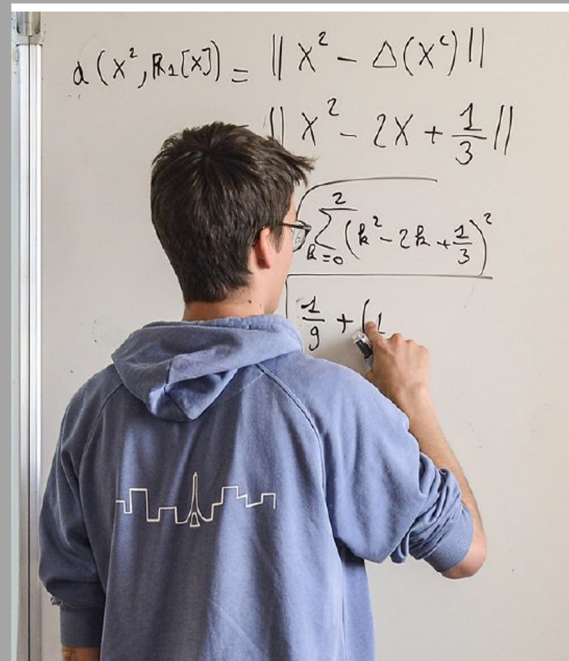 d(X², ℝ₁[X]) = ‖X² - Δ(X²)‖
‖X² - 2X + 1/3‖
√(∑_{k=0}^{2} (k² - 2k + 1/3)²)
1/9 + (1